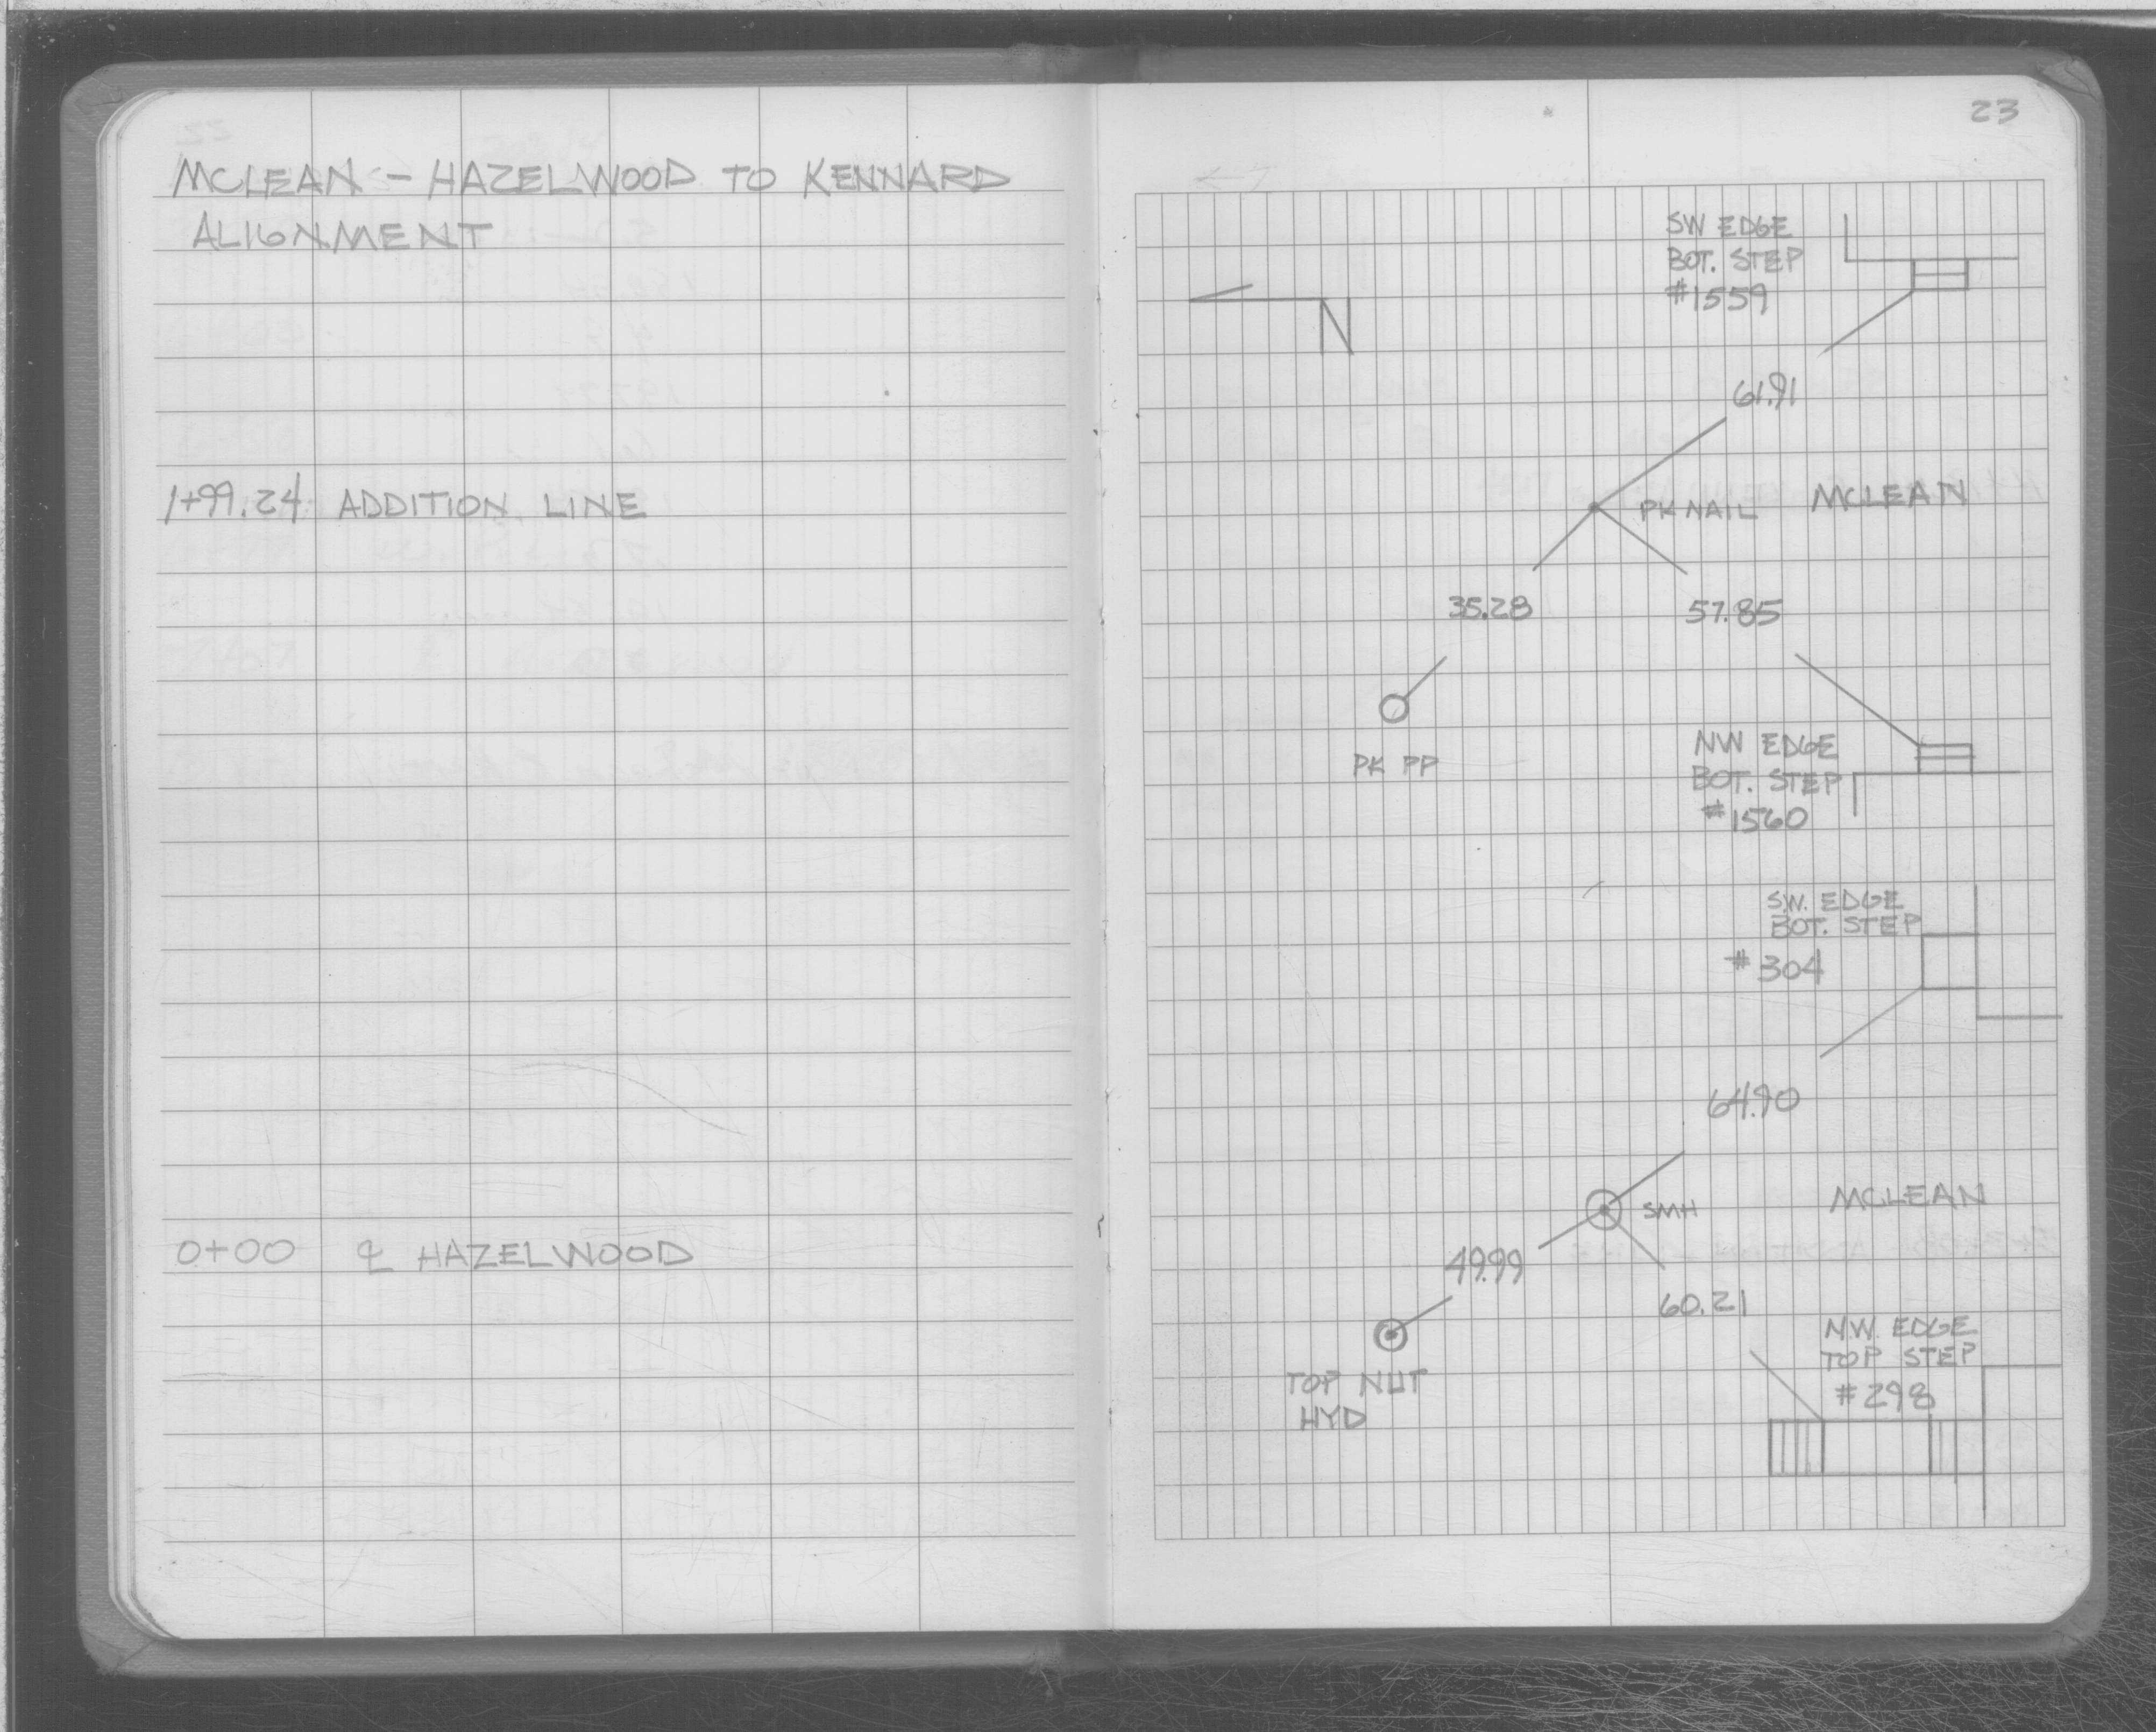 MCLEAN - HAZELWOOD TO KENNARD
ALIGNMENT
1+99.24 ADDITION LINE
0+00 ℄ HAZELWOOD
23
SW EDGE
BOT. STEP
#1559
N
61.91
PK NAIL MCLEAN
35.28 57.85
PK PP
NW EDGE
BOT. STEP
#1560
S.W. EDGE
BOT. STEP
#304
64.90
SMH MCLEAN
49.99
60.21
NW EDGE
TOP STEP
#298
TOP NUT
HYD